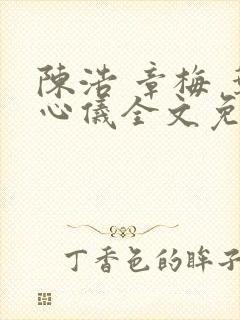 陳浩 章梅
心儀全文免
丁香色的眸子